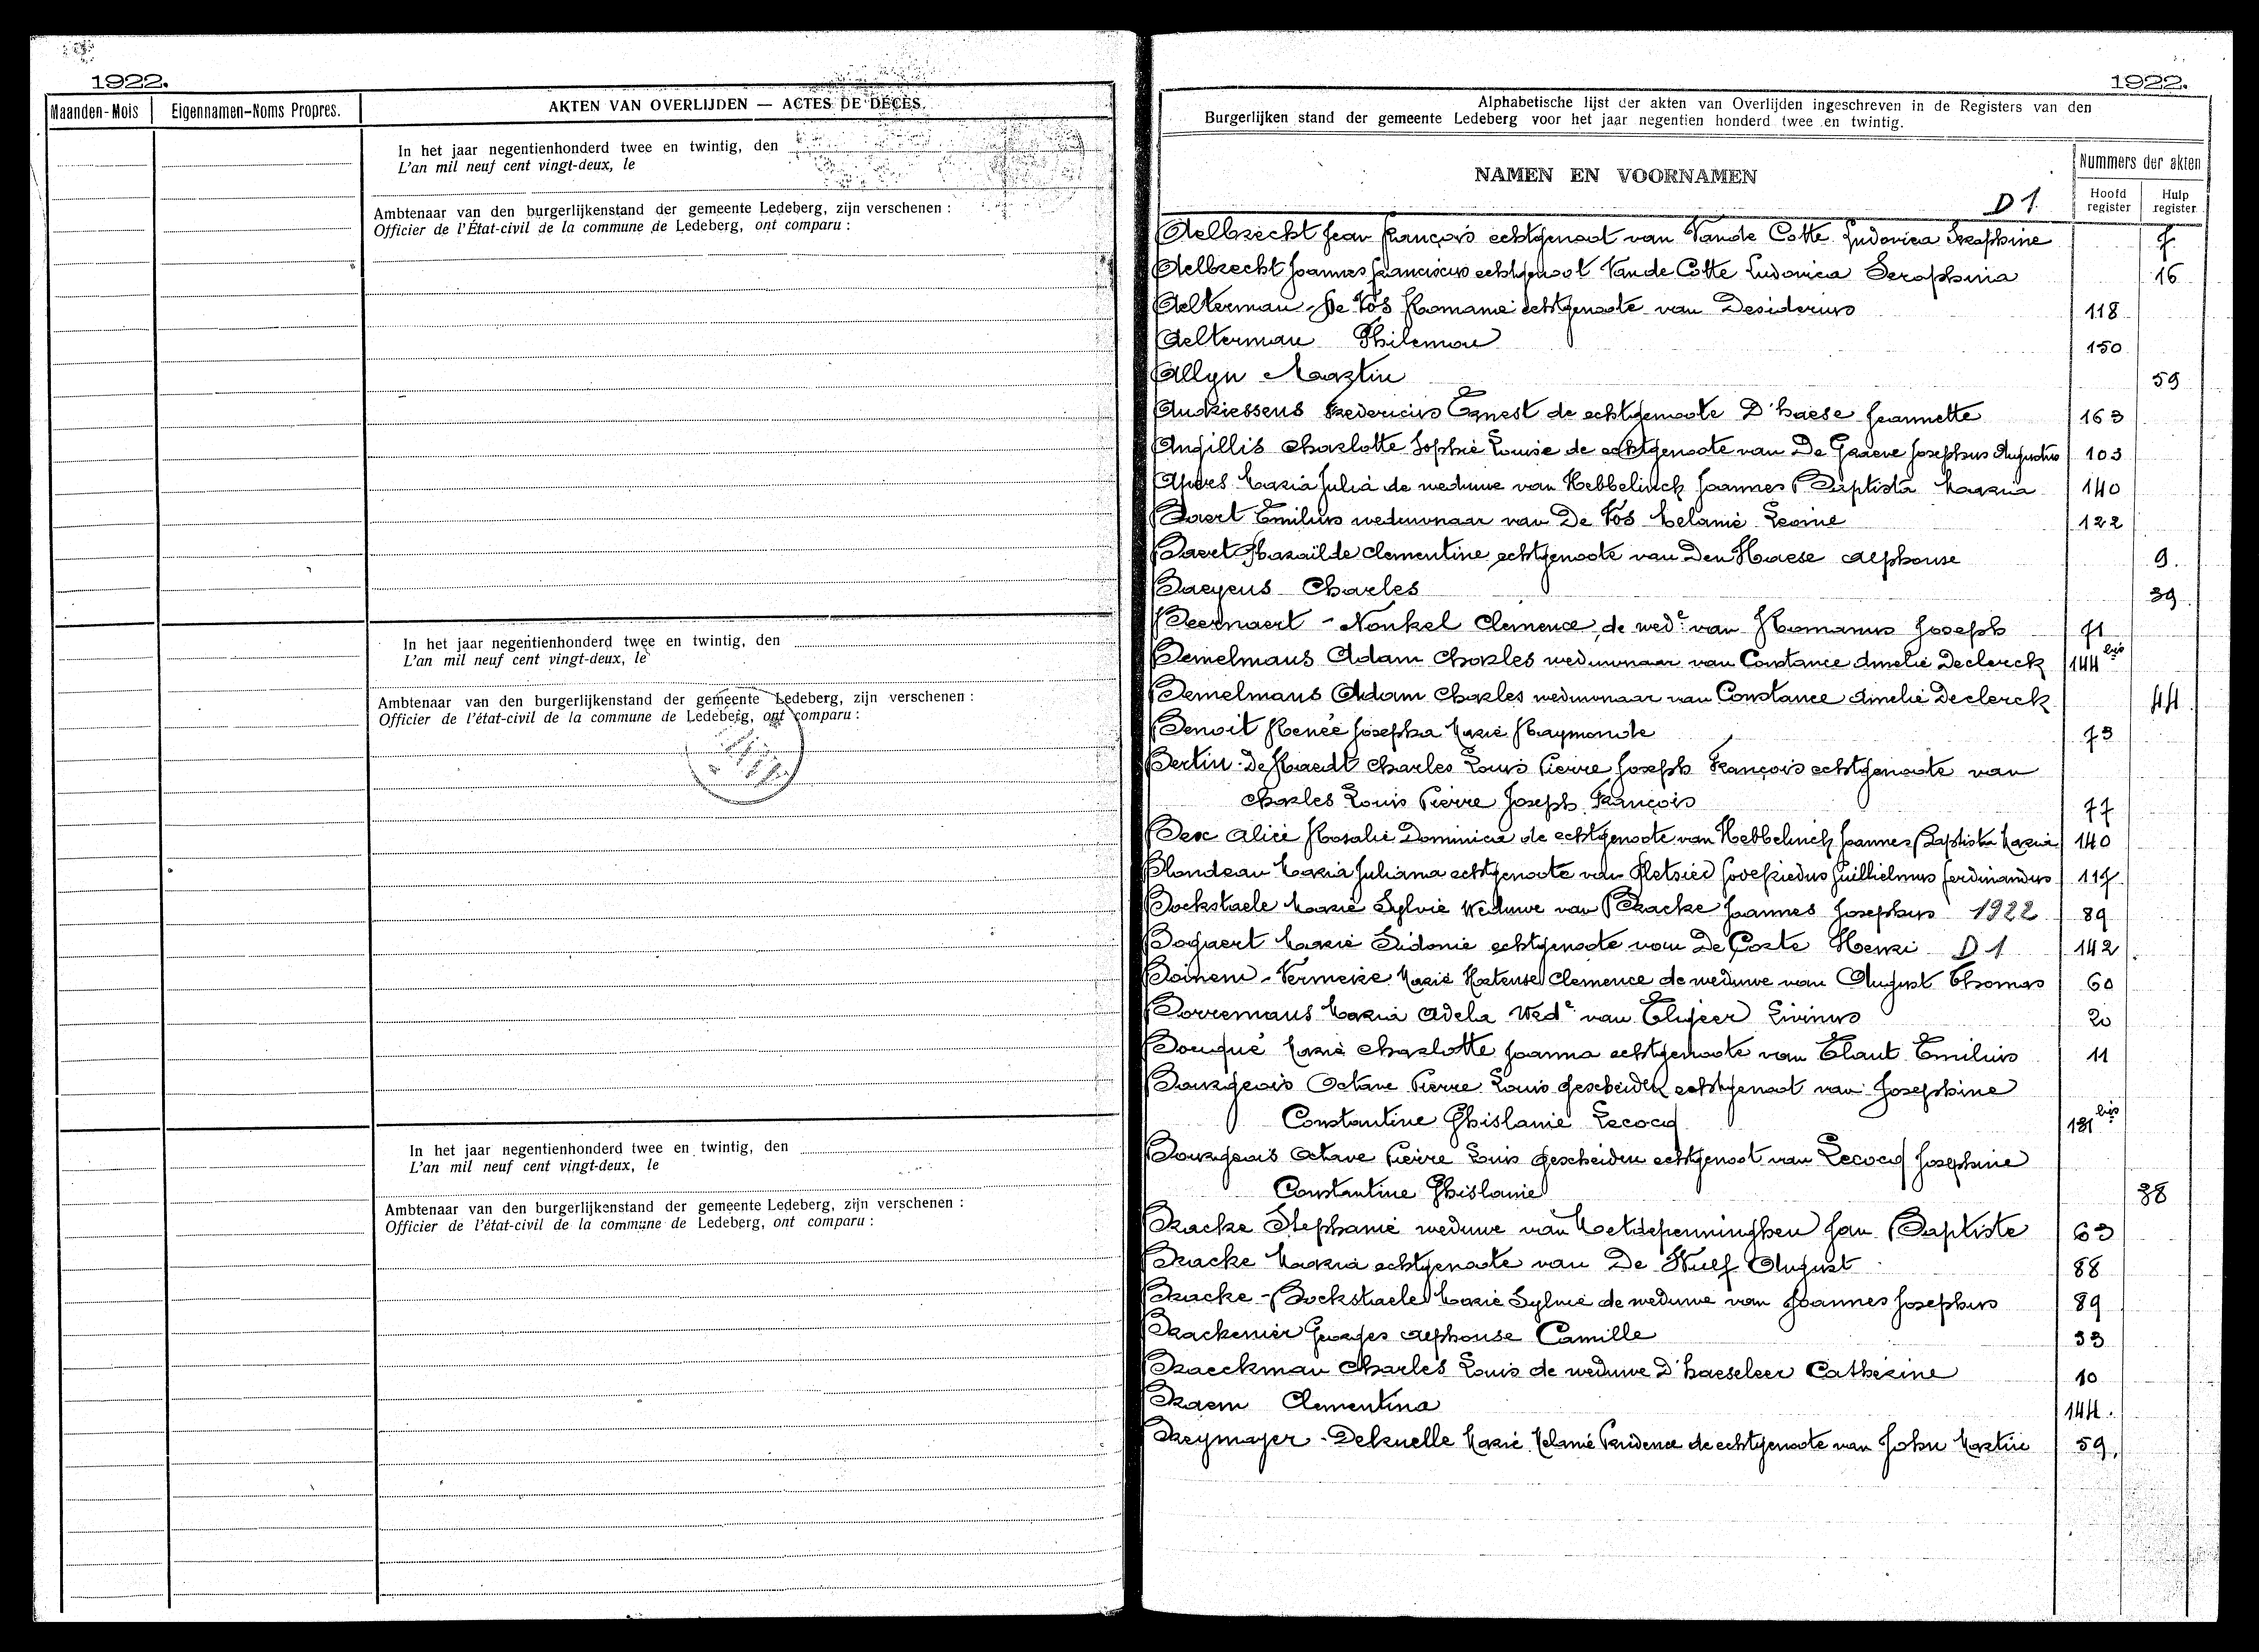 1922.
Maanden-Mois Eigennamen-Noms Propres. AKTEN VAN OVERLIJDEN — ACTES DE DÉCÈS.
In het jaar negentienhonderd twee en twintig, den
L'an mil neuf cent vingt-deux, le
Ambtenaar van den burgerlijkenstand der gemeente Ledeberg, zijn verschenen :
Officier de l'État-civil de la commune de Ledeberg, ont comparu :
In het jaar negentienhonderd twee en twintig, den
L'an mil neuf cent vingt-deux, le
Ambtenaar van den burgerlijkenstand der gemeente Ledeberg, zijn verschenen :
Officier de l'état-civil de la commune de Ledeberg, ont comparu :
In het jaar negentienhonderd twee en twintig, den
L'an mil neuf cent vingt-deux, le
Ambtenaar van den burgerlijkenstand der gemeente Ledeberg, zijn verschenen :
Officier de l'état-civil de la commune de Ledeberg, ont comparu :
1922.
Alphabetische lijst der akten van Overlijden ingeschreven in de Registers van den
Burgerlijken stand der gemeente Ledeberg voor het jaar negentien honderd twee en twintig.
NAMEN EN VOORNAMEN
D 1
Nummers der akten
Hoofd register
Hulp register
Aelbrecht Jean François echtgenoot van Vande Cotte Ludovica Seraphine 7
Aelbrecht Joannes Franciscus echtgenoot Van de Cotte Ludovica Seraphina 16
Aelterman - De Vos Romanie echtgenoote van Desiderius 118
Aelterman Philemon 150
Allyn Martin 59
Andriessens Fredericus Ernest de echtgenoote D'haese Jeannette 163
Angillis Charlotte Sophie Louise de echtgenoote van De Graeve Josephus Augustus 103
Maria Julia de weduwe van Hebbelinck Joannes Baptista Maria 140
Baert Emilius weduwnaar van De Vos Melanie Leonie 122
Baert Clementine echtgenoote van Den Haese Alphonse 9.
Baeyens Charles 39
Beernaert - Nonkel Clemence de wede van Romanus Joseph 71
Bemelmans Adam Charles weduwnaar van Constance Amelie Declerck 144 bis
Bemelmans Adam Charles weduwnaar van Constance Amelie Declerck 44
Benoit Renée Josepha Marie Raymonde 73
Bertin - De Raedt Charles Louis Pierre Joseph François echtgenoote van
Charles Louis Pierre Joseph François 77
Alice Rosalie Dominica de echtgenoote van Hebbelinck Joannes Baptista Maria 140
Blondeau Maria Juliana echtgenoote van Pletsier Godefriedus Guilhielmus Ferdinandus 117
Bockstaele Marie Sylvie Weduwe van Bracke Joannes Josephus 1922 89
Bogaert Marie Sidonie echtgenoote van De Corte Henri D 1 142
Boinem - Vermeire Marie Hortense Clemence de weduwe van August Thomas 60
Borremans Maria Adela Wede van Elyjeer Livinus 20
Bouqué Marie Charlotte Joanna echtgenoote van Claut Emilius 11
Bourgeois Octave Pierre Louis gescheiden echtgenoot van Josephine
Constantine Ghislanie Lecocq 131 bis
Bourgeois Octave Pierre Louis gescheiden echtgenoot van Lecocq Josephine
Constantine Ghislanie 38
Bracke Stephanie weduwe van Metdepenninghen Jan Baptiste 63
Bracke Maria echtgenoote van De Wulf August 88
Bracke - Bockstaele Marie Sylvie de weduwe van Joannes Josephus 89
Brackenier Georges Alphonse Camille 33
Braeckman Charles Louis de weduwe D'haeseleer Catherine 10
Braem Clementina 144.
Breymayer - Delruelle Marie Melanie Prudence de echtgenoote van John Martin 59.